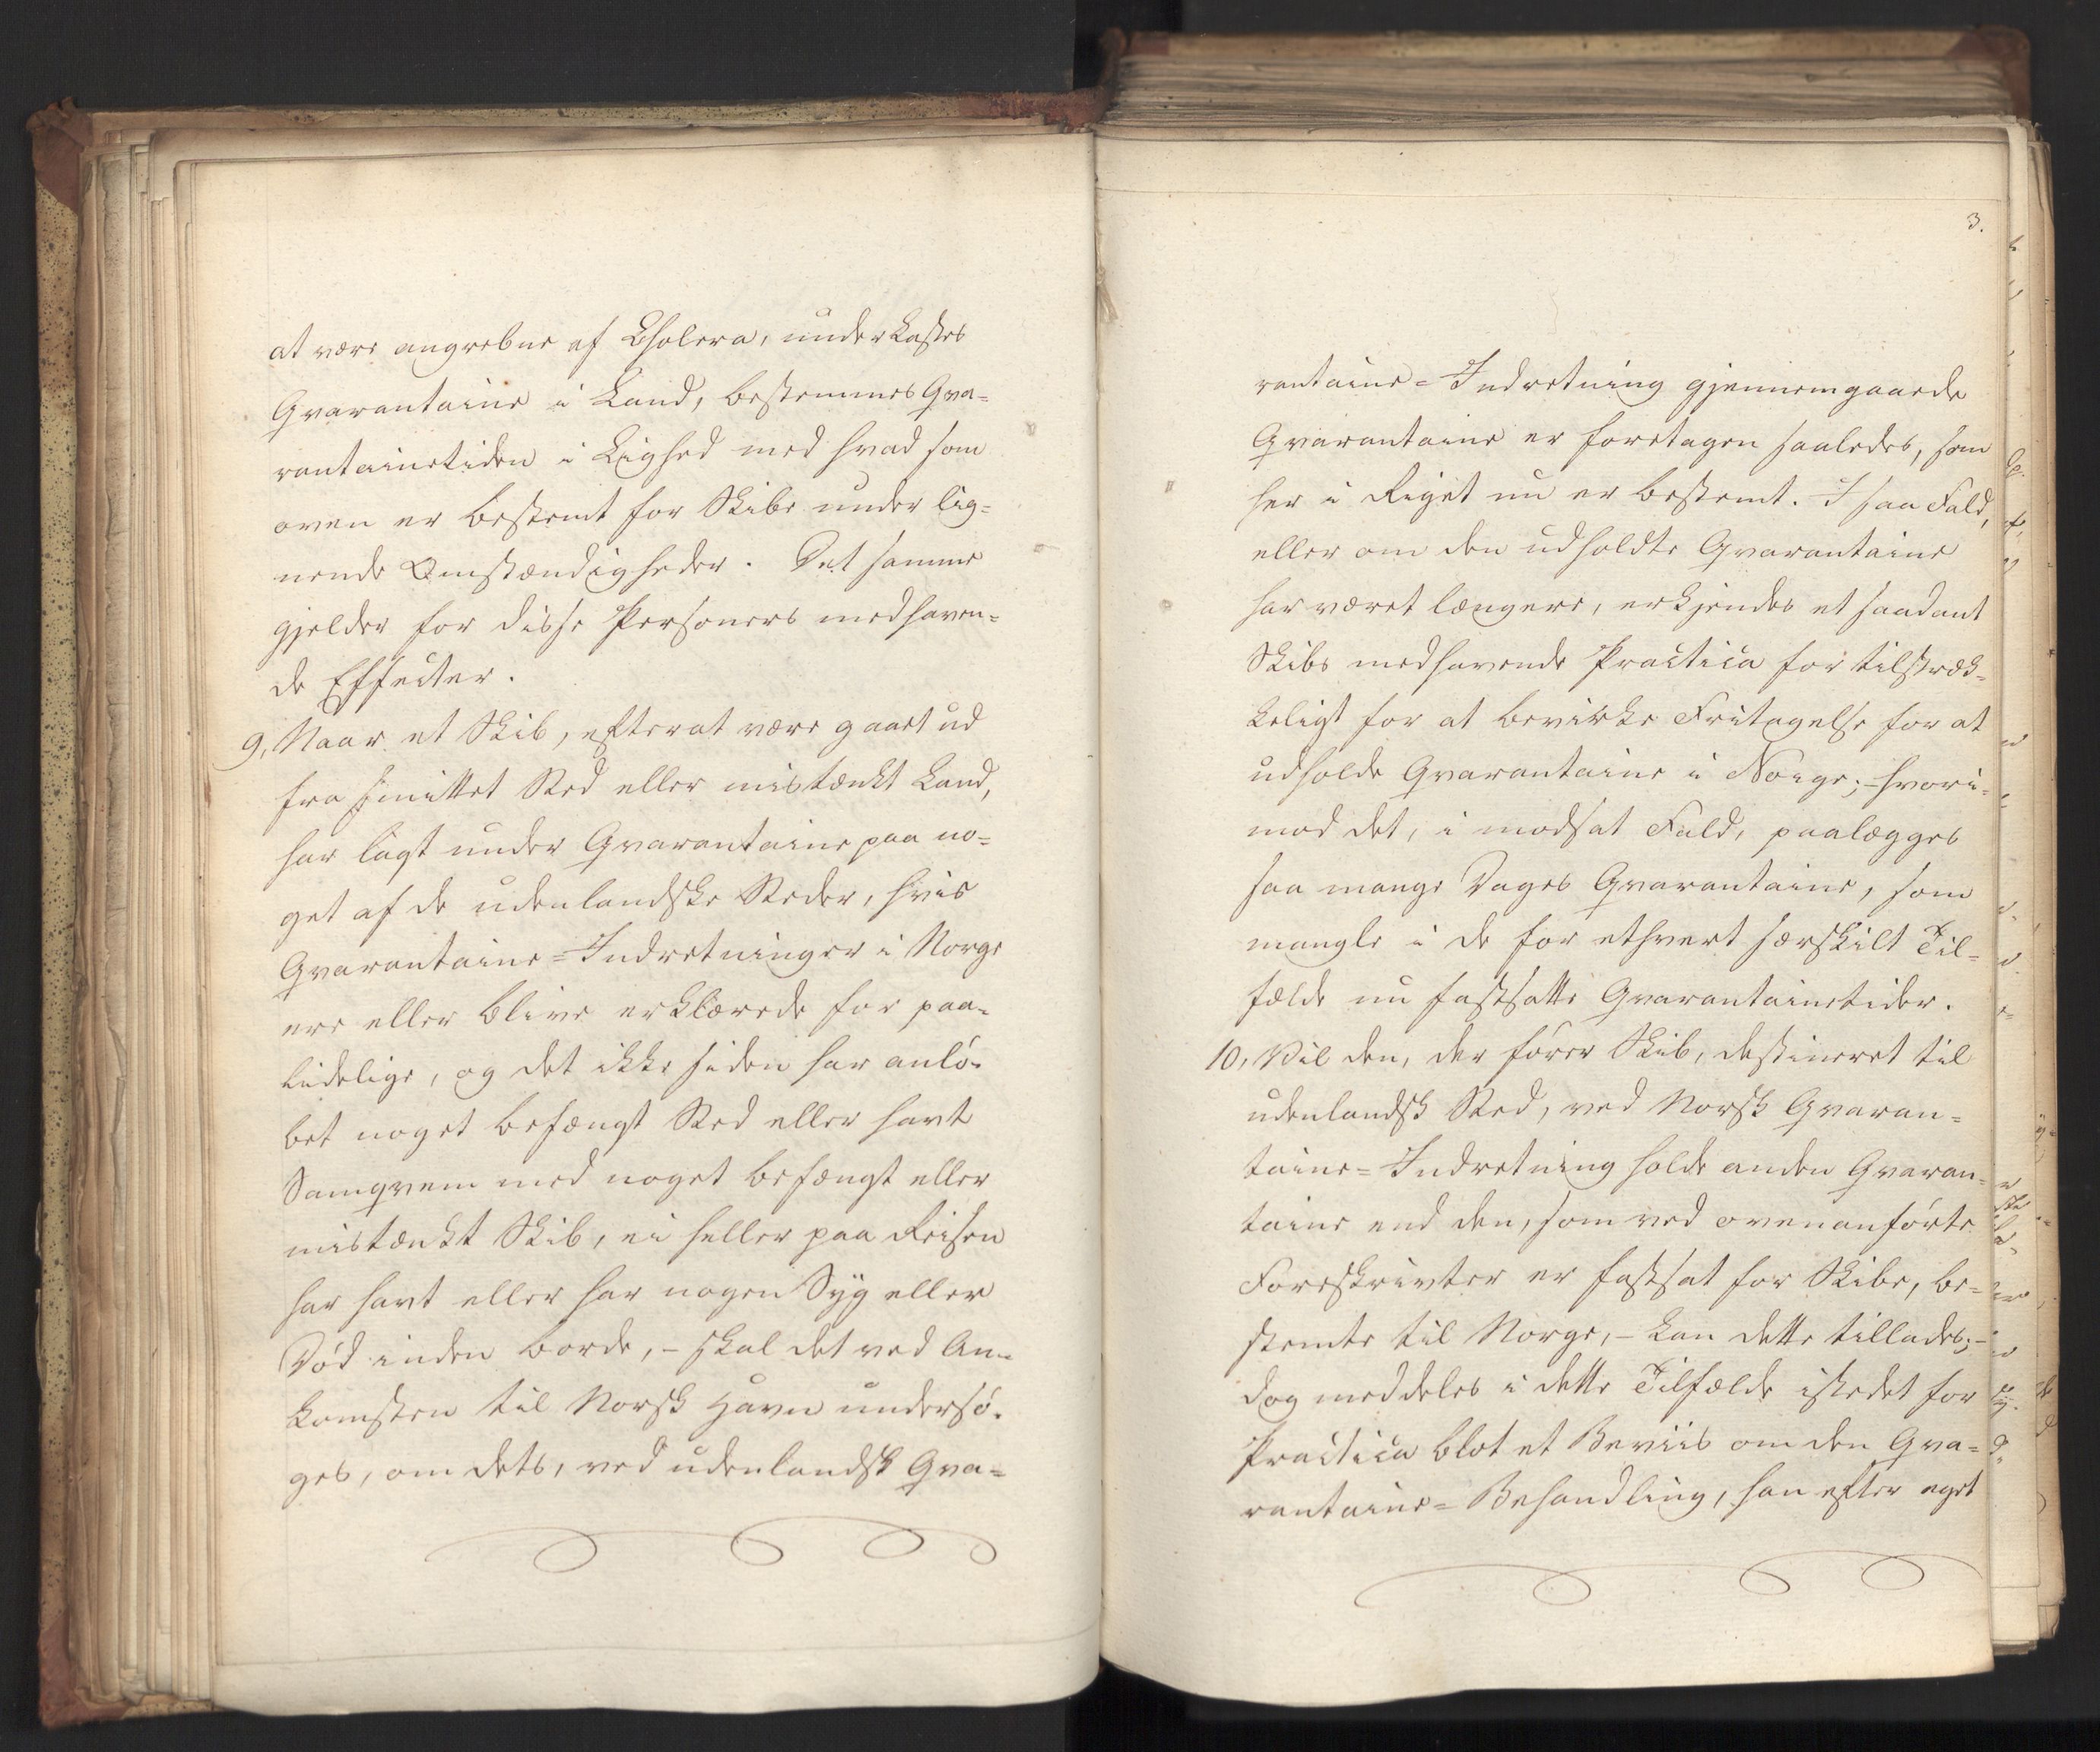 at være angrebne af Cholera, underkastes
Qvarantaine i Land, bestemmes Qva-
rantainetiden i Lighed med hvad som
oven er bestemt for Skibe under lig-
nende Omstændigheder. Det samme
gjelder for disse Personers medhaven-
de Effecter.
9, Naar et Skib, efterat være gaaet ud
fra smittet Sted eller mistænkt Land,
har lagt under Qvarantaine paa no-
get af de udenlandske Steder, hvis
Qvarantaine-Indretninger i Norge
ere eller blive erklærede for paa-
lidelige, og det ikke siden har anlø-
bet noget befængt Sted eller havt
Samqvem med noget befængt eller
mistænkt Skib, ei heller paa Reisen
har havt eller har nogen Syg eller
Død inden borde, - skal det ved An-
komsten til Norsk Havn undersø-
ges, om dets, ved udenlandsk Qva-
3.
rantaine-Indretning gjennemgaaede
Qvarantaine er foretagen saaledes, som
her i Riget nu er bestemt. I saa Fald,
eller om den udholdte Qvarantaine
har været længere, erkjendes et saadant
Skibs medhavende Practica for tilstræk-
keligt for at bevirke Fritagelse for at
udholde Qvarantaine i Norge; - hvori-
mod det, i modsat Fald, paalægges
saa mange Dages Qvarantaine, som
mangle i de for ethvert særskilt Til-
fælde nu fastsatte Qvarantainetider.
10, Vil den, der fører Skib, destineret til
udenlandsk Sted, ved Norsk Qvaran-
taine-Indretning holde anden Qvaran-
taine end den, som ved ovenanførte
Foreskrivter er fastsat for Skibe, be-
stemte til Norge, - kan dette tillades; -
dog meddeles i dette Tilfælde istedet for
Practica blot et Beviis om den Qva-
rantaine-Behandling, han efter eget